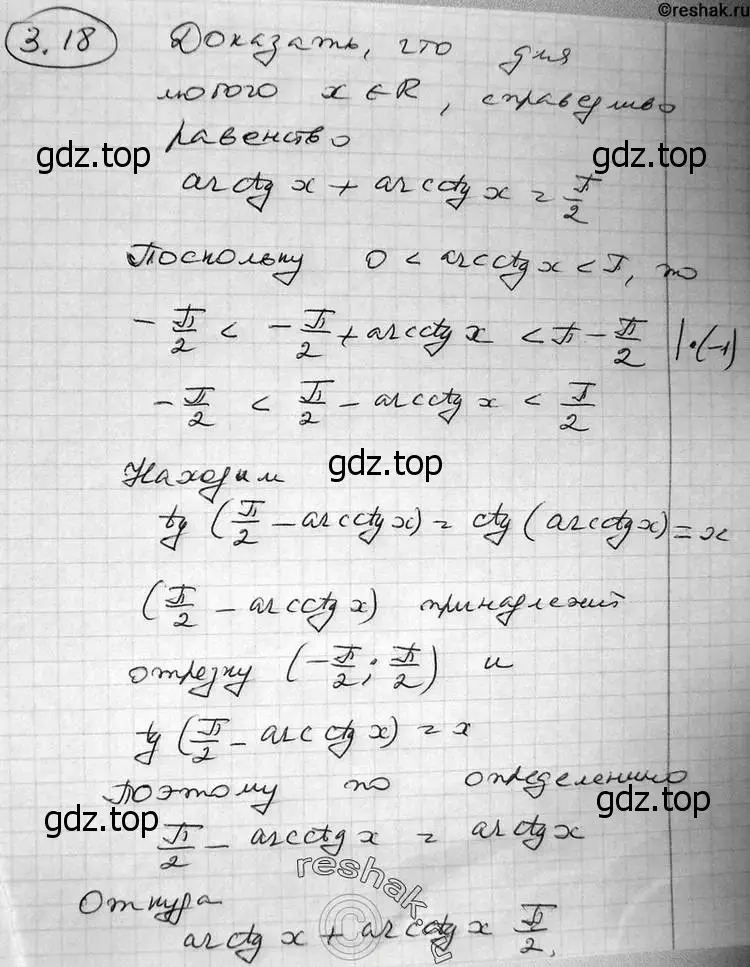 ©reshak.ru
3.18 Доказать, что для
любого x ∈ R, справедливо
равенство
gdz.top gdz.top
arctg x + arcctg x = π/2
Поскольку 0 < arcctg x < π, то
-π/2 < -π/2 + arcctg x < π - π/2 |·(-1)
-π/2 < π/2 - arcctg x < π/2
gdz.top
Находим
tg (π/2 - arcctg x) = ctg (arcctg x) = x
gdz.top
(π/2 - arcctg x) принадлежит
отрезку (-π/2; π/2) и
tg (π/2 - arcctg x) = x
Поэтому по определению
gdz.top gdz.top
π/2 - arcctg x = arctg x
Откуда
arctg x + arcctg x π/2.
reshak.ru